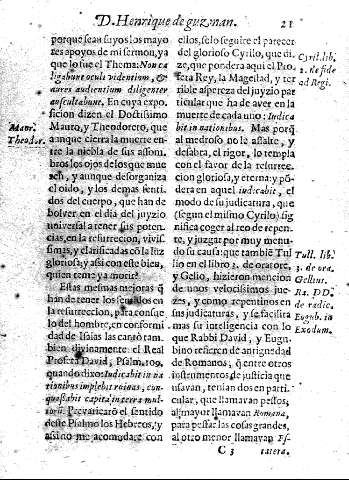 D. Henrique de guzman. 21
porque sean suyos los mayo
res apoyos de mi sermon, ya
que lo fue el Thema: Non ca
ligabunt oculi videntium, &
aures audientium diligenter
auscultabunt. En cuya expo
sicion dizen el Doctissimo
Mauro, y Theodoreto, que
aunque cierra la muerte en-
tre la niebla de sus assom-
bros los ojos de los que mue
ren, y aunque desorganiza
el oido, y los demas senti-
dos del cuerpo, que han de
bolver en el dia del juyzio
universal a tener sus poten-
cias, en la resurrecion, vivis-
simas, y clarificadas cō la luz
gloriosa; y assi con este bien,
quien teme ya morir?
Estas mesmas mejoras q̄
hán de tener los sentidos en
la resurreccion, para consue
lo del hombre, en conformi
dad de Isaias las cantò tam
bien divinamente el Real
Profeta David, Psalm. 109.
quando dixo: Iudicabit in na
tionibus implebit ruinas, con-
quassabit capita in terra mul-
torum. Prevaricarō el sentido
deste Psalmo los Hebreos, y
assi no me acomodare con
Maur.
Theodor.
ellos, solo seguire el parecer
del glorioso Cyrilo, que di-
ze, que pondera aqui el Pro
feta Rey, la Magestad, y ter
rible aspereza del juyzio par
ticular que ha de aver en la
muerte de cada uno: Iudica
bit in nationibus. Mas porq̄
al medroso no le assalte, y
desabra, el rigor, lo templa
con el favor de la resurrec-
cion gloriosa, y eterna: y pō
dera en aquel iudicabit, el
modo de su judicatura, que
(segun el mismo Cyrilo) sig
nifica coger al reo de repen-
te, y juzgar por muy menu-
do su causa: que tambiē Tu
lio en el libro 3. de oratore,
y Gelio, hizieron mencion
de unos velocissimos jue-
zes, y como repentinos en
sus judicaturas, y se facilita
mas su inteligencia con lo
que Rabbi David, y Eugu-
bino refieren de antiguedad
de Romanos, q̄ entre otros
instrumentos de justicia que
usavan, tenian dos en parti-
cular, que llamavan pessos,
al mayor llamavan Romana,
para pessar las cosas grandes,
al otro menor llamavan Es-
Cyril. lib.
2. de fide
ad Regi.
Tull. lib.
3. de ora.
Gellius.
Ra. DD.
de radic.
Eugub. in
Exodum.
C 3 tatera.